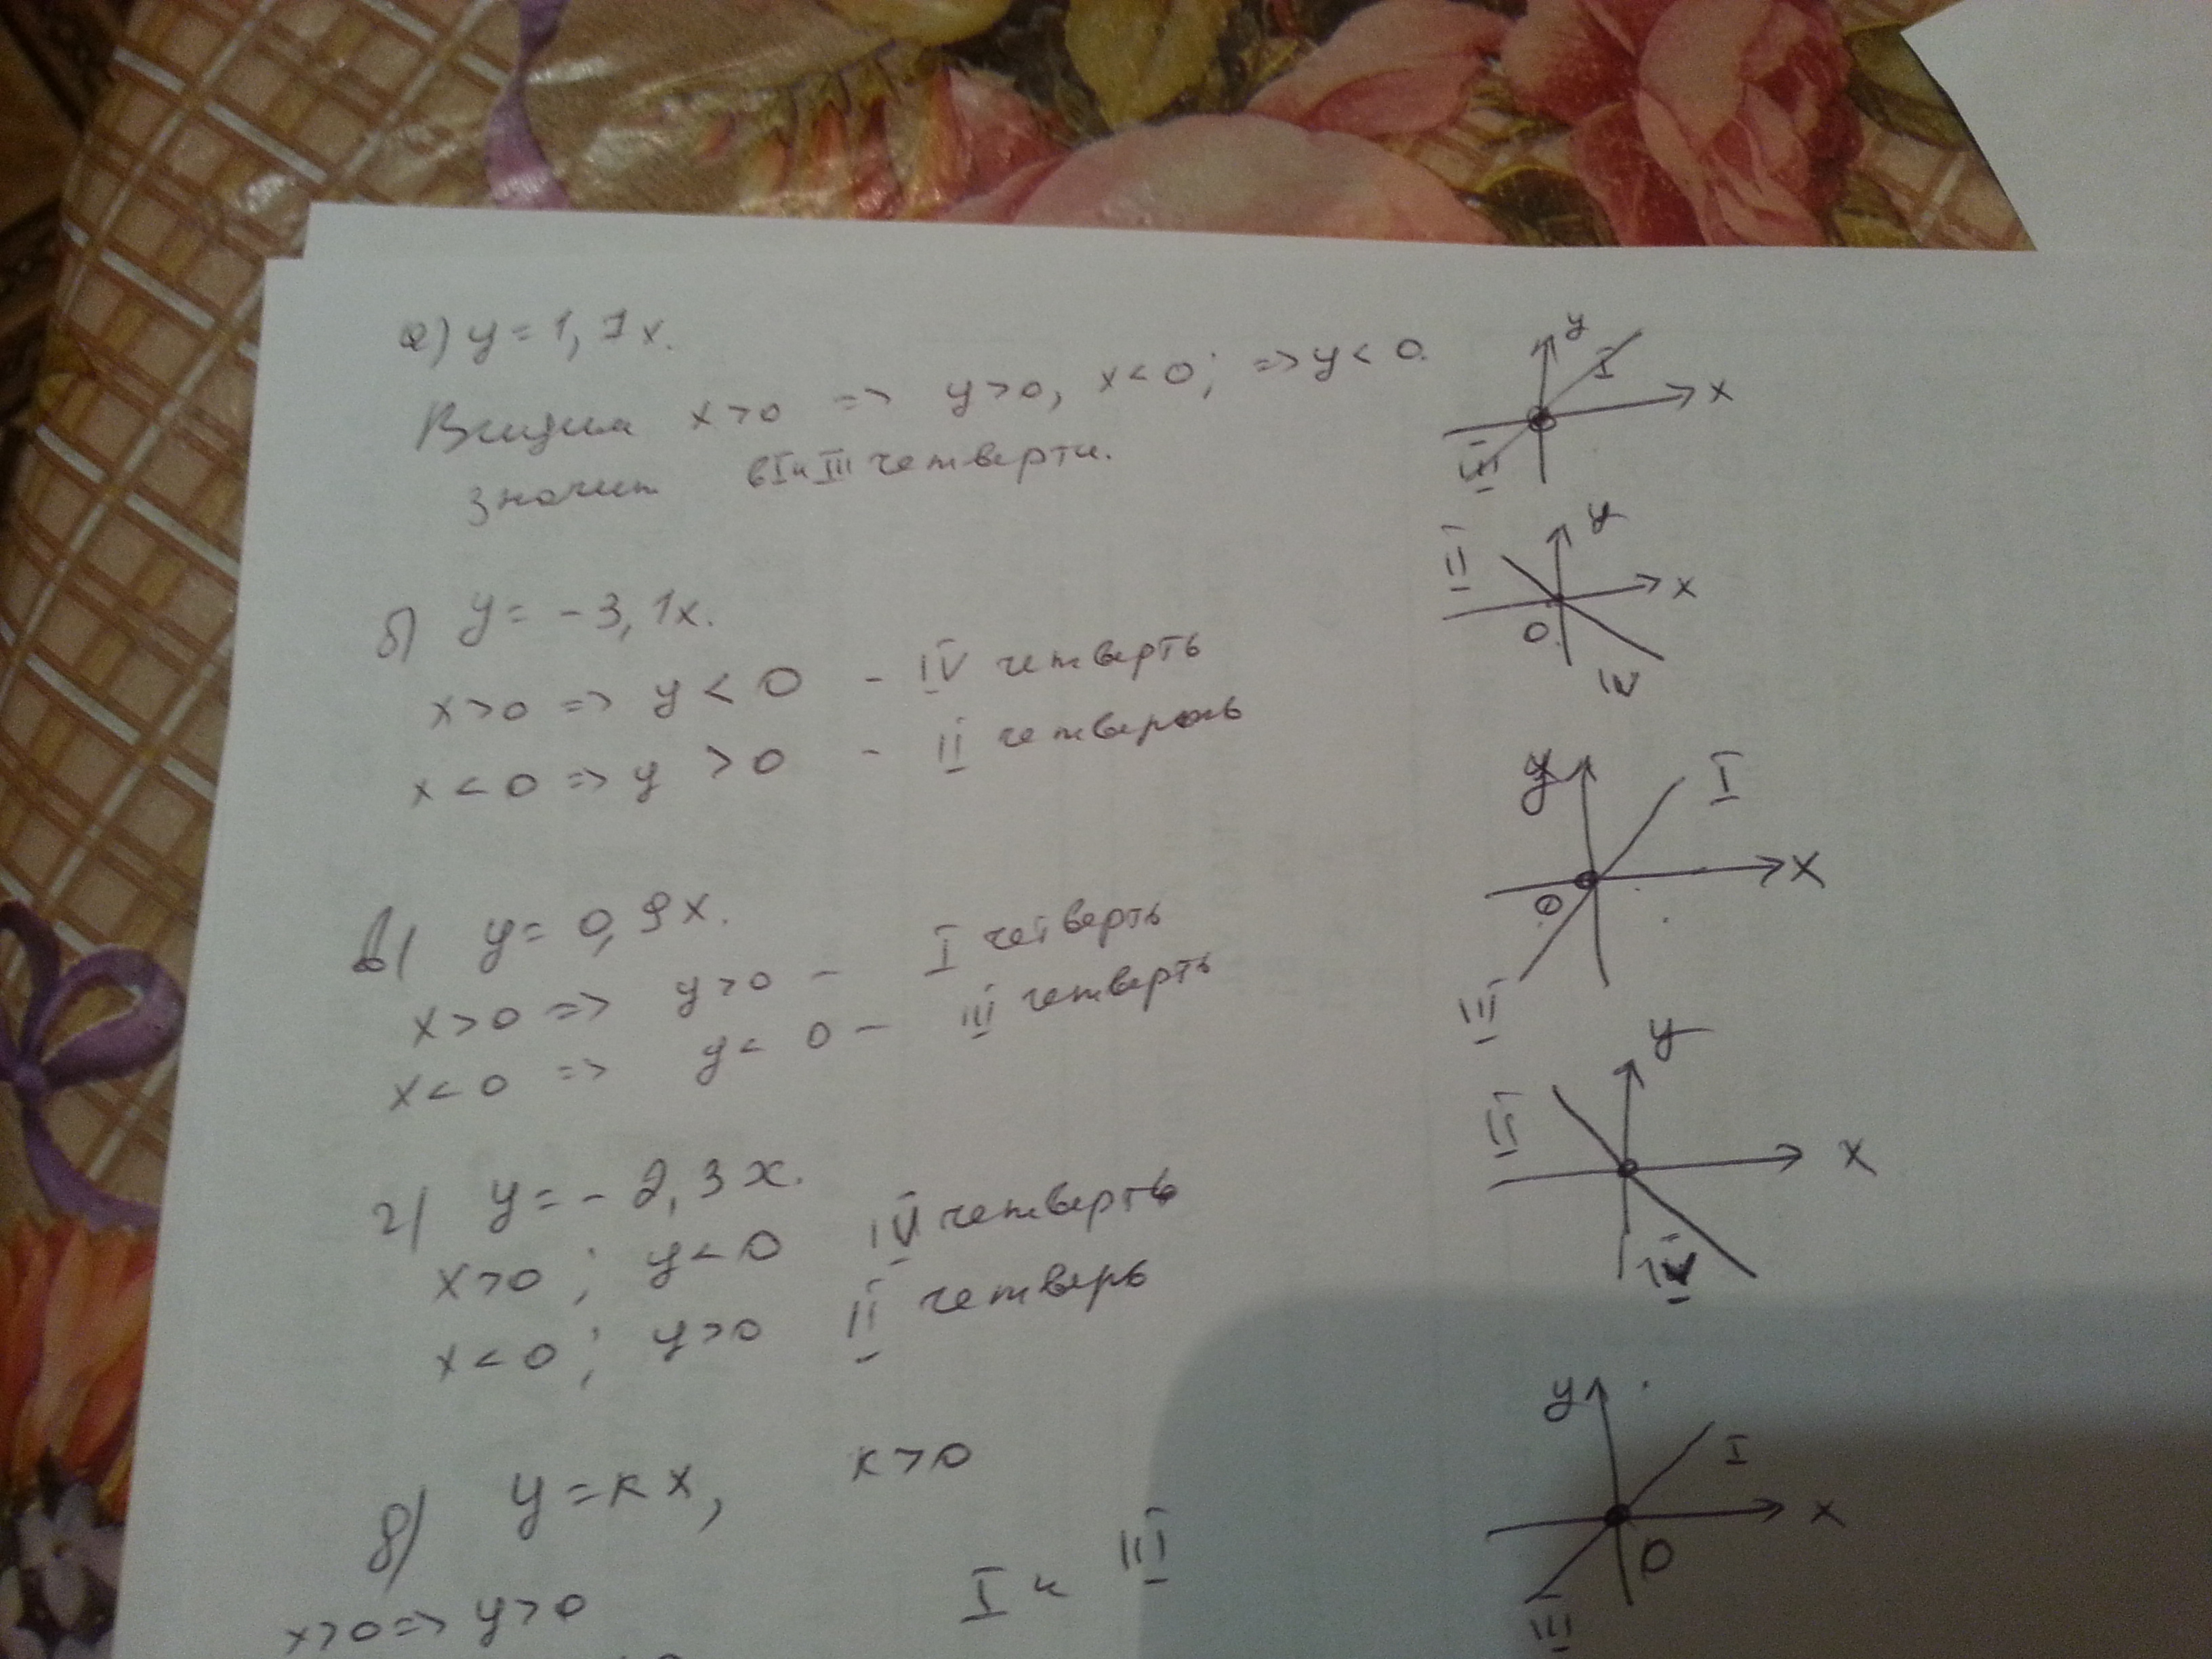 а) y = 1,7x.
Видим x > 0 => y > 0, x < 0; => y < 0.
значит в I и III четверти.
y
I
x
III
б) y = -3,1x.
x > 0 => y < 0 - IV четверть
x < 0 => y > 0 - II четверть
y
II
x
0
IV
в) y = 0,9x.
x > 0 => y > 0 - I четверть
x < 0 => y < 0 - III четверть
y
I
x
0
III
г) y = -2,3x.
x > 0; y < 0 IV четверть
x < 0; y > 0 II четверь
y
II
x
IV
д) y = kx, k > 0
x > 0 => y > 0 I и III
y
I
x
0
III